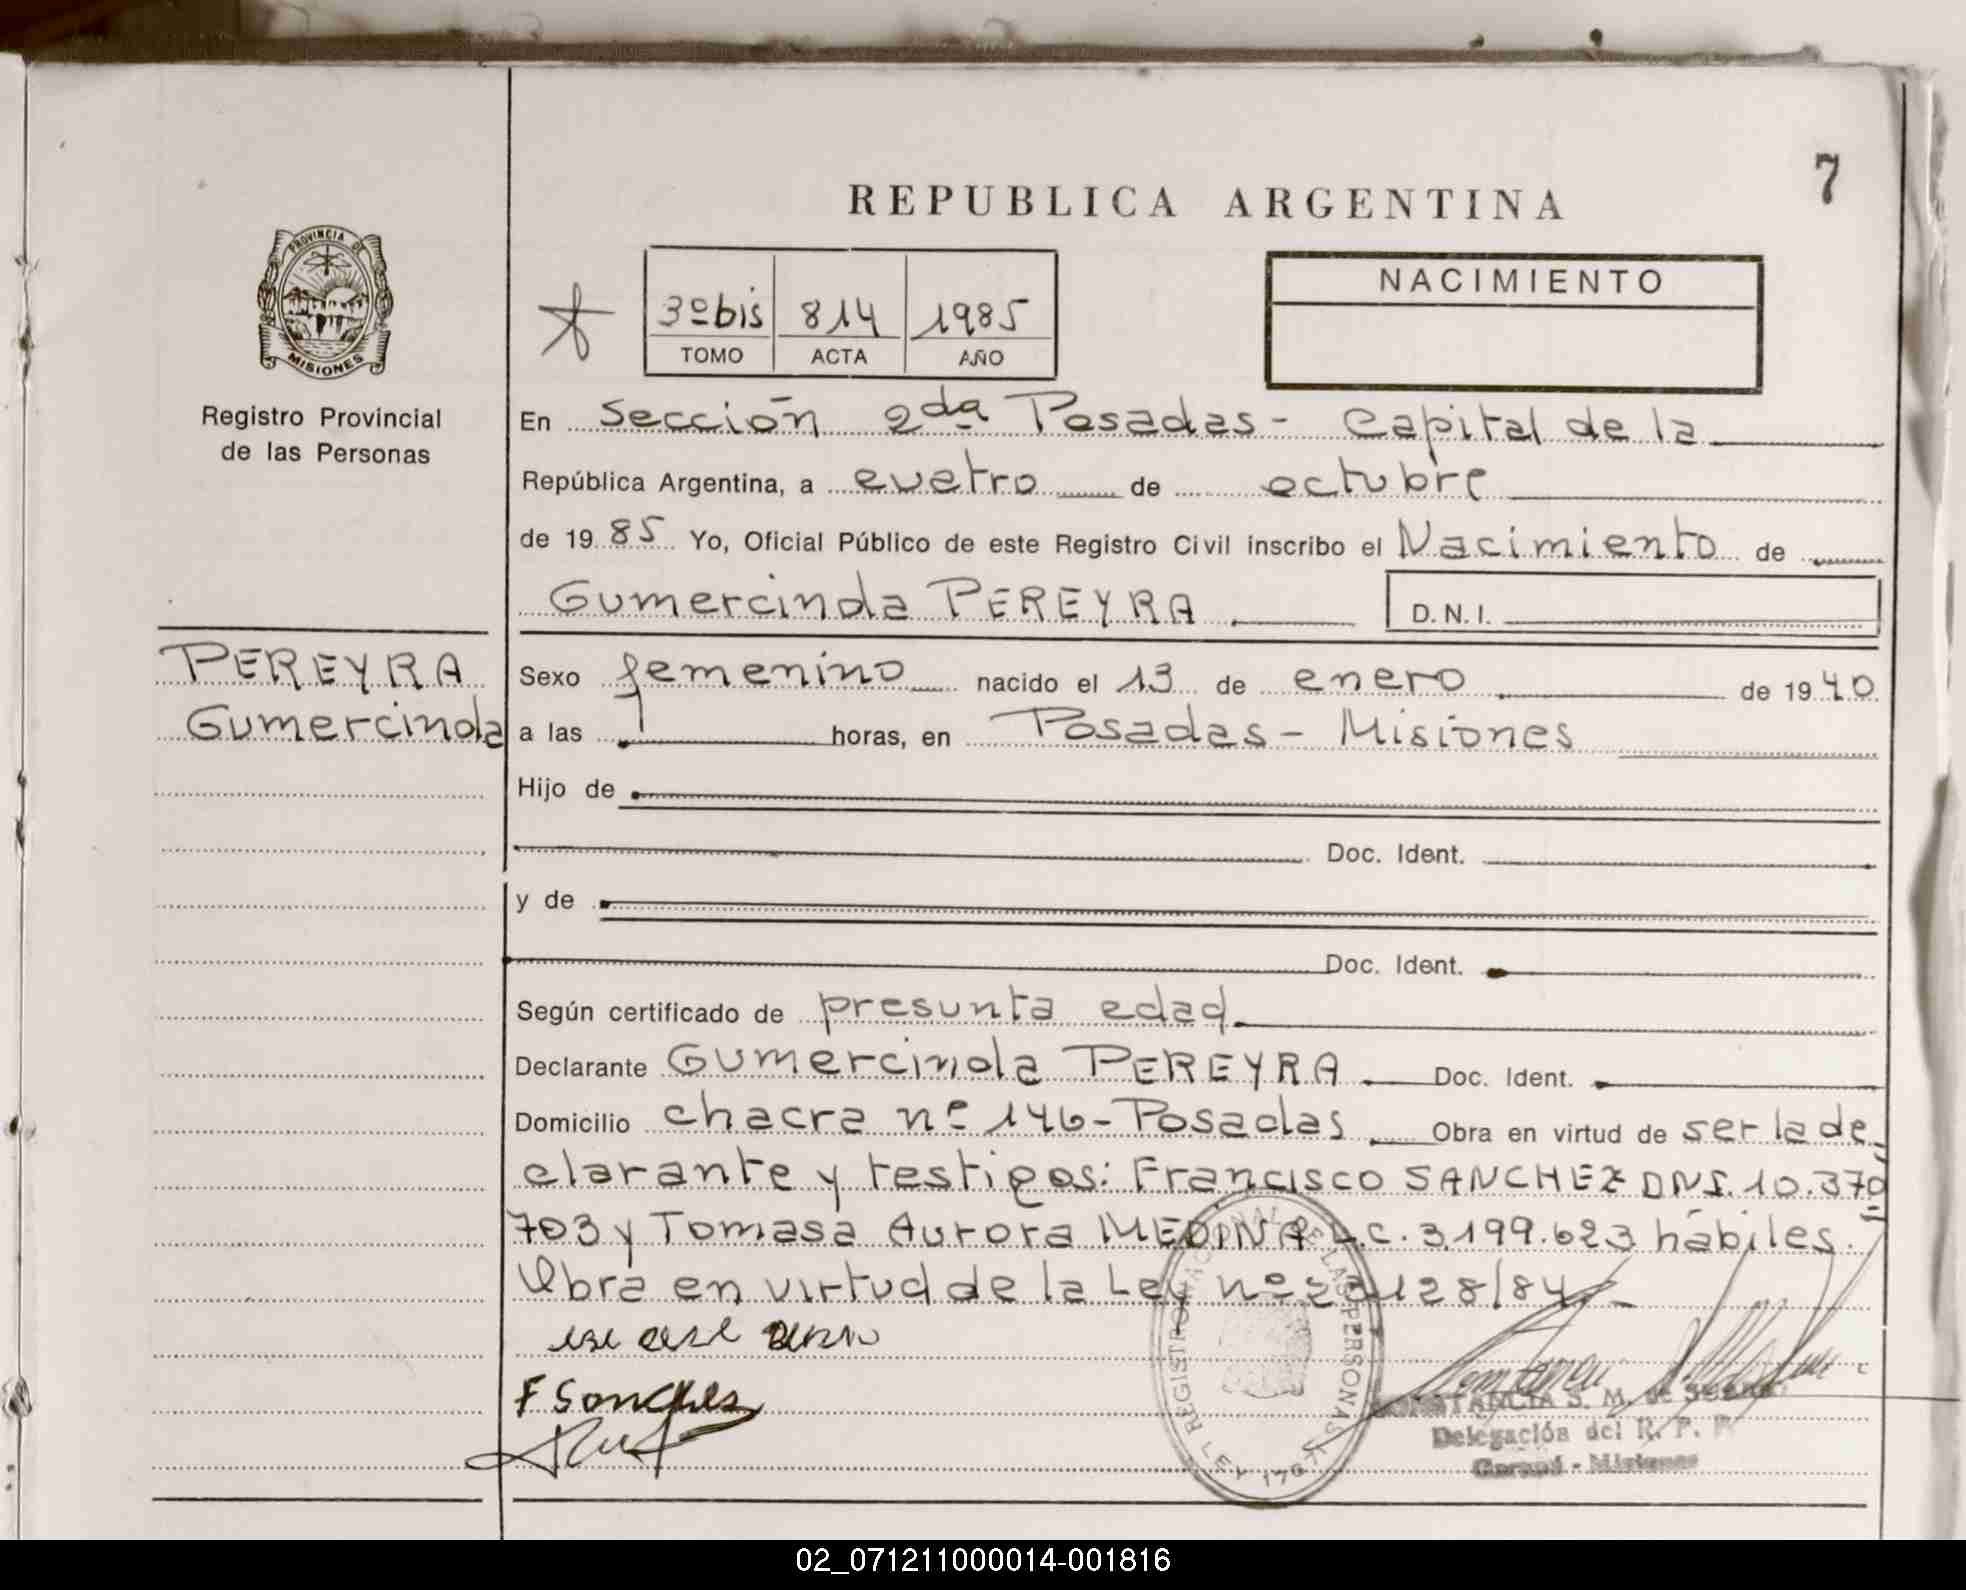 7
REPUBLICA ARGENTINA
PROVINCIA DE
MISIONES
Registro Provincial
de las Personas
3º bis 814 1985
TOMO ACTA AÑO
NACIMIENTO
En Sección 2da Posadas - Capital de la
República Argentina, a cuatro de octubre
de 1985 Yo, Oficial Público de este Registro Civil inscribo el Nacimiento de
Gumercinda PEREYRA D.N.I.
PEREYRA
Gumercinda
Sexo femenino nacido el 13 de enero de 1940
a las horas, en Posadas - Misiones
Hijo de
Doc. Ident.
y de
Doc. Ident.
Según certificado de presunta edad
Declarante Gumercinda PEREYRA Doc. Ident.
Domicilio chacra nº 146 - Posadas Obra en virtud de ser la de
clarante y testigos: Francisco SANCHEZ DNI. 10.370
703 y Tomasa Aurora MEDINA L.C. 3.199.623 hábiles.
Obra en virtud de la Ley nº 23128/84.-
F Sanchez
REGISTRO NACIONAL DE LAS PERSONAS
LEY 17671
CONSTANCIA S. M. de
Delegación del R. P. P.
Garupá - Misiones
02_071211000014-001816